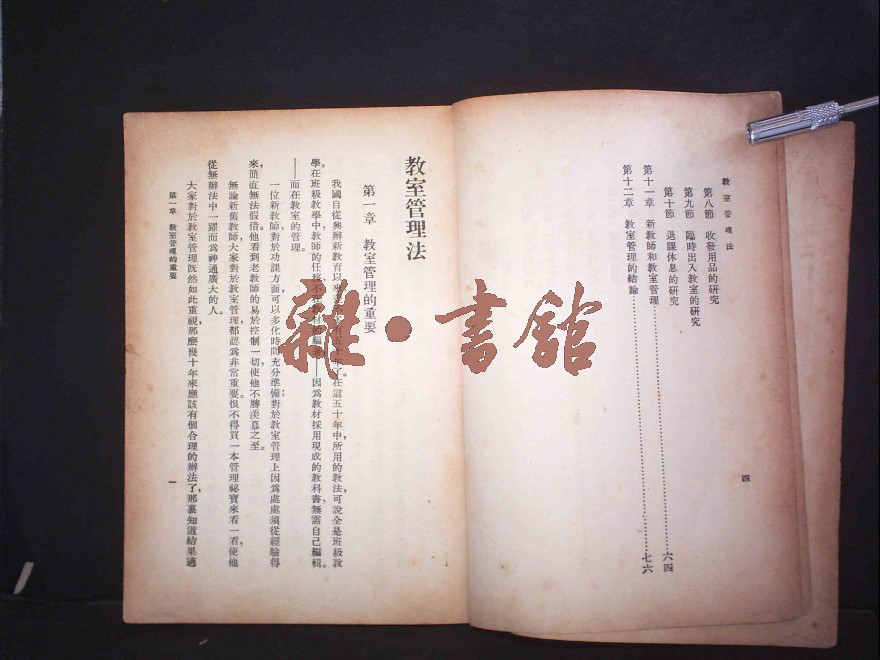 教室管理法
第八節　收發用品的研究
第九節　臨時出入教室的研究
第十節　退課休息的研究
第十一章　新教師和教室管理……六四
第十二章　教室管理的結論……七六
四
教室管理法
第一章　教室管理的重要
我國自從興辦新教育以來，有五十年了。在這五十年中，所用的教法，可說全是班級教
學。在班級教學中，教師的任務，不在教材的編著——因爲教材採用現成的教科書，無需自己編輯。
——而在教室的管理。
一位新教師，對於功課方面，可以多化時間，充分準備；對於教室管理上，因爲處處須從經驗得
來，簡直無法假借。他看到老教師的易於控制一切，使他不勝羨慕之至。
無論新舊教師，大家對於教室管理，都認爲非常重要。恨不得買一本管理祕寶來看一看，使他
從無辦法中一躍而爲神通廣大的人。
大家對於教室管理旣然如此重視，那麽幾十年來應該有個合理的辦法了，那裏知道結果適
第一章　教室管理的重要
一
雜·書館